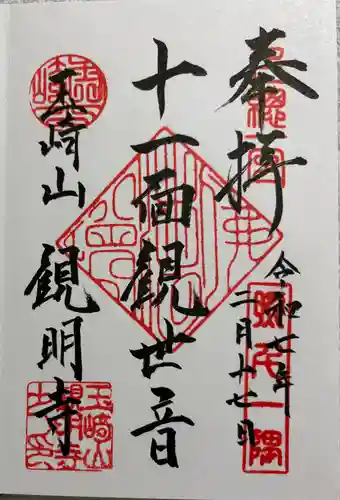 奉拝
令和七年
二月十七日
十一面観世音
玉崎山
観明寺
一隅
玉崎山